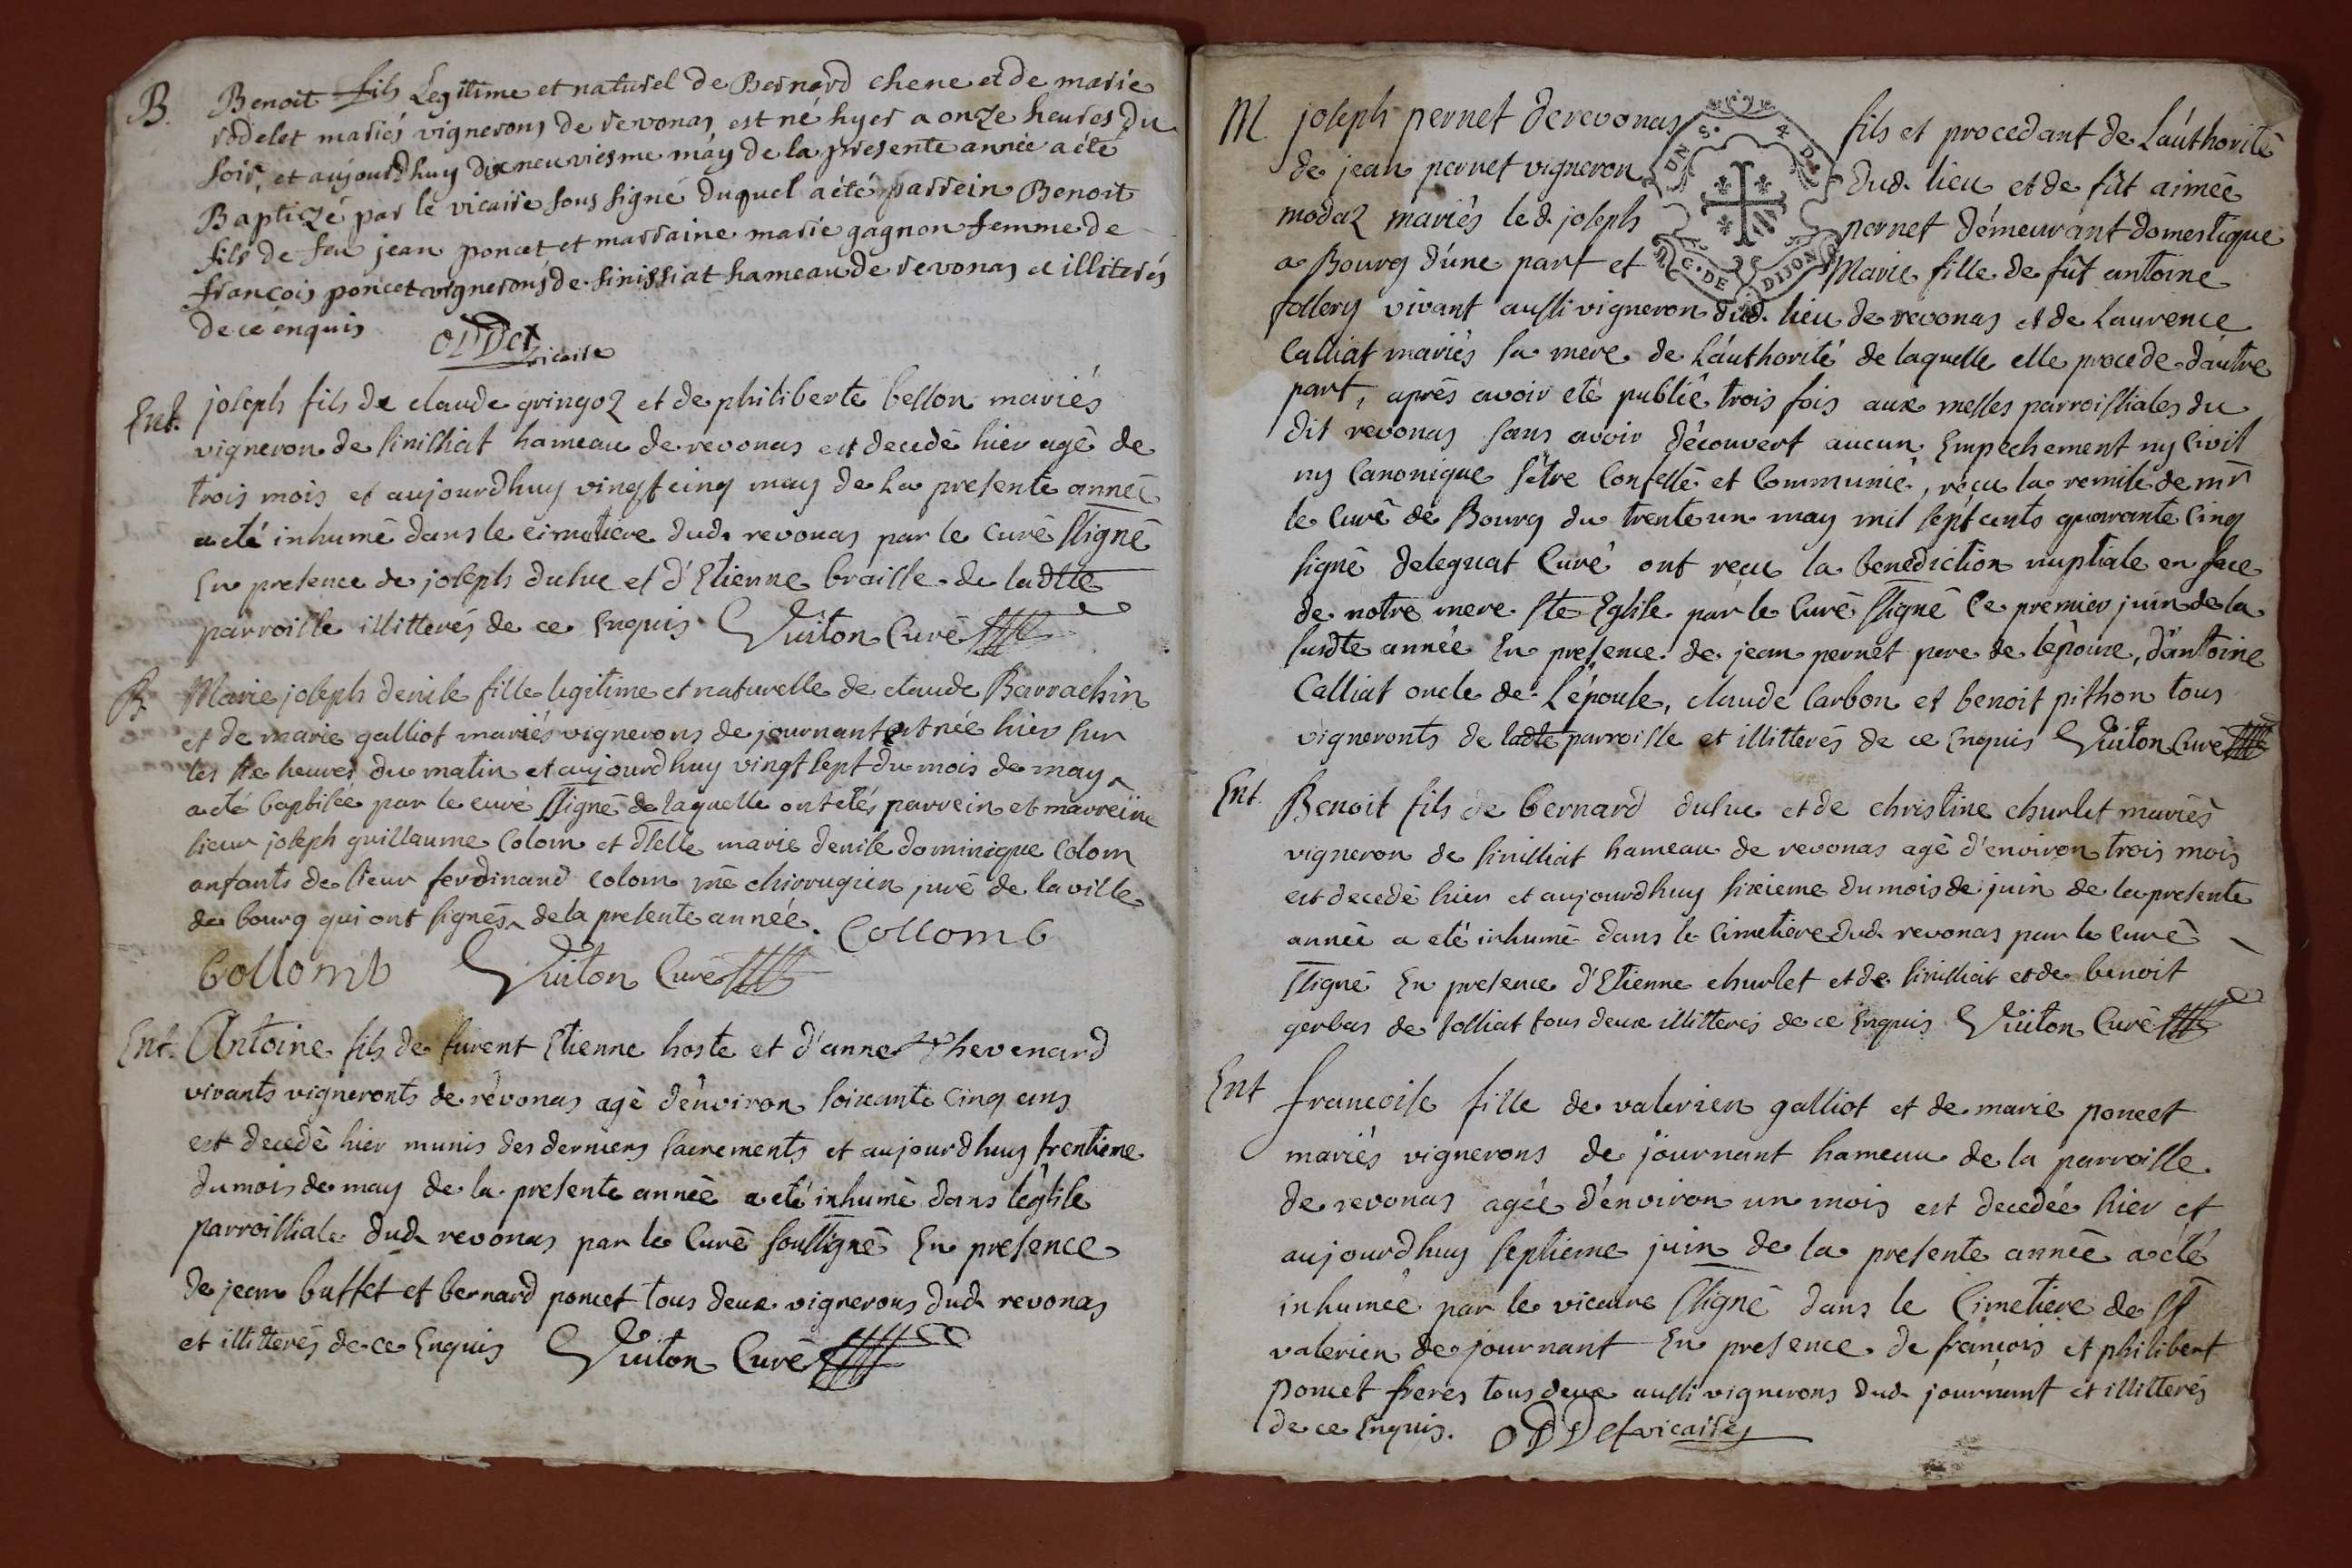 B. Benoit fils Legitime et naturel de Bernard chene et de marie
rodelet mariés vignerons de revonas est né hyer a onze heures du
soir, et aujourdhuy dixneuviesme máy de la presente année a été
Baptizé par le vicaire sous signé duquel a été parrein Benoit
fils de feu jean poncet et marraine marie gagnon femme de
françois poncet vignerons de sinissiat hameau de revonas et illiterés
de ce enquis ODDet vicaire
Ent. joseph fils de claude gringoz et de philiberte bellon mariés
vigneron de sinissiat hameau de revonas est decedé hier agé de
trois mois et aujourdhuy vingt cinq may de la presente année
a eté inhumé dans le cimetiere dud. revonas par le curé ssigné
En presence de joseph duluc et d'Etienne braisse de ladtte
parroisse illitterés de ce Enquis Vuiton Curé
B. Marie joseph denise fille legitime et naturelle de claude Barrachin
et de marie galliot mariés vignerons de journant est née hier sur
les six heures du matin et aujourdhuy vingt sept du mois de may ^
a eté baptisée par le curé ssigné de laquelle ont etés parrein et marreine
sieur joseph guillaume Colom et dlelle marie denise dominique Colom
enfants de sieur ferdinand colom me chirrugien juré de la ville
de bourg qui ont signés ^ de la presente année. Collomb
Collomb Vuiton Curé
Ent. Antoine fils de furent Etienne hoste et d'anne thevenard
vivants vigneronts de revonas agé d'environ soixante cinq ans
est decedé hier munis des derniers sacrements et aujourdhuy trentieme
du mois de may de la presente année a eté inhumé dans léglise
parroissiale dud. revonas par le Curé soussigné En presence
de jean buffet et bernard poncet tous deux vignerons dud. revonas
et illitterés de ce Enquis Vuiton Curé
M joseph pernet de revonas fils et procedant de Láuthorité
de jean pernet vigneron dud. lieu et de fût aimée
modaz mariés led. joseph pernet démeurant domestique
a Bourg d'une part et Marie fille de fût antoine
follery vivant aussi vigneron dud. lieu de revonas et de Laurence
Calliat mariés sa mere de Láuthorité de laquelle elle procede dáutre
part, aprés avoir eté publié trois fois aux messes parroissiales du
dit révonas sans avoir découvert aucun Empechement ny Civil
ny Canonique s'étre Confessé et Communié, récu la remise de mr
le Curé de Bourg du trente un may mil sept cents quarante Cinq
signé deleguat Curé ont recu la benediction nuptiale en face
de notre mere ste Eglise par le Curé ssigné Ce premier juin de la
susdte année En presence de jean pernet pere de lepoux, d'antoine
Calliat oncle de L'épouse, claude Carbon et benoit pithon tous
vigneronts de ladte parroisse et illitterés de ce Enquis Vuiton Curé
Ent. Benoit fils de bernard duluc et de christine churlet mariés
vigneron de sinissiat hameau de revonas agé d'environ trois mois
est decedé hier et aujourdhuy sixieme du mois de juin de la presente
année a eté inhumé dans le Cimetiere dud. revonas par le Curé
ssigné En presence d'Etienne churlet et de sinissiat et de benoit
gerbas de solliat tous deux illitterés de ce Enquis Vuiton Curé
Ent francoise fille de valerien galliot et de marie poncet
mariés vignerons de journant hameau de la parroisse
de revonas agée d'environ un mois est decedée hier et
aujourdhuy septieme juin de la presente année a eté
inhumée par le vicaire ssigné dans le Cimetiere de st
valerien de journant En presence de francois et philibert
poncet freres tous deux aussi vignerons dud. journant et illitterés
de ce Enquis. ODDet vicaire
G. DE DIJON